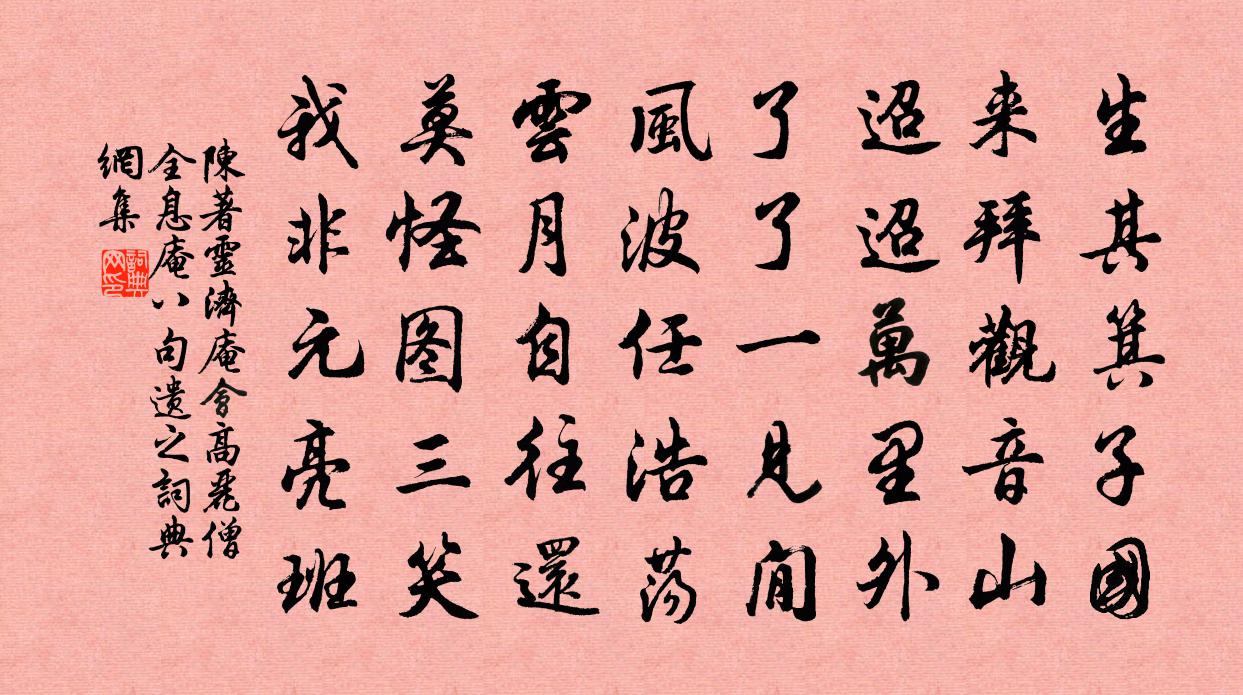 生其箕子國
来拜觀音山
迢迢萬里外
了了一見間
風波任浩蕩
雲月自往還
莫怪图三笑
我非元亮班
陳著靈濟庵會高麗僧
全息庵八句遺之詞典
網集
詞典
网印